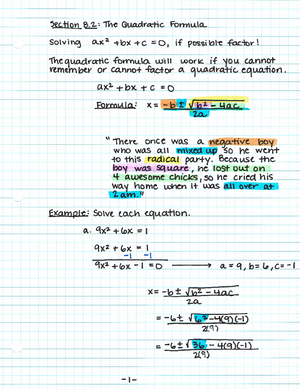 Section 8.2: The Quadratic Formula
Solving ax² + bx + c = 0, if possible factor!
The quadratic formula will work if you cannot
remember or cannot factor a quadratic equation.
ax² + bx + c = 0
Formula: x = -b ± √b² - 4ac
2a
"There once was a negative boy
who was all mixed up so he went
to this radical party. Because the
boy was square, he lost out on
4 awesome chicks, so he cried his
way home when it was all over at
2am."
Example: Solve each equation.
a. 9x² + 6x = 1
9x² + 6x = 1
-1 -1
9x² + 6x - 1 = 0 → a = 9, b = 6, c = -1
x = -b ± √b² - 4ac
2a
= -6 ± √6² - 4(9)(-1)
2(9)
= -6 ± √36 - 4(9)(-1)
2(9)
-1-